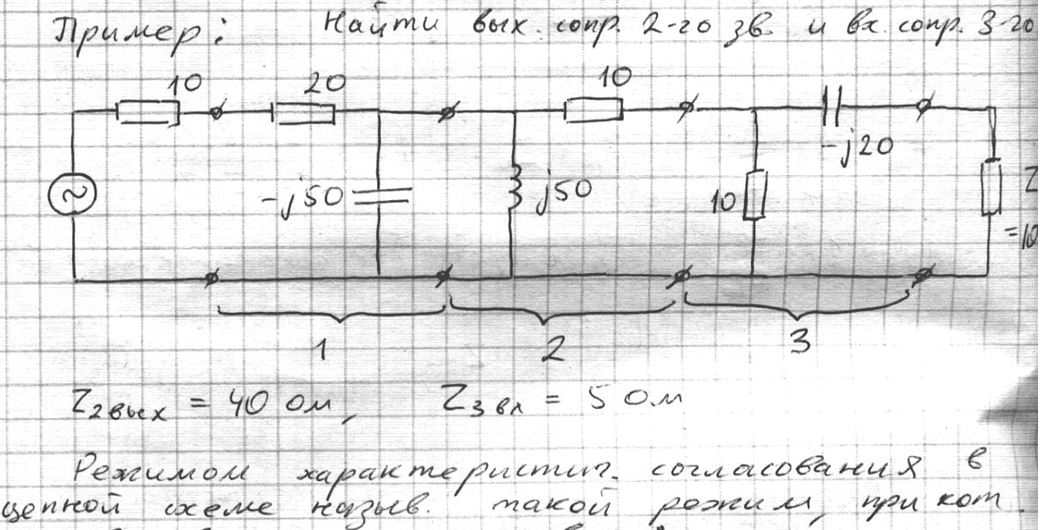 Пример: Найти вых. сопр. 2-го зв. и вх. сопр. 3-го
10 20 10
-j50 j50 10 -j20 Z
=10
1 2 3
Z2вых = 40 Ом, Z3вх = 5 Ом
Режимом характеристич. согласования в
цепной схеме назыв. такой режим, при кот.